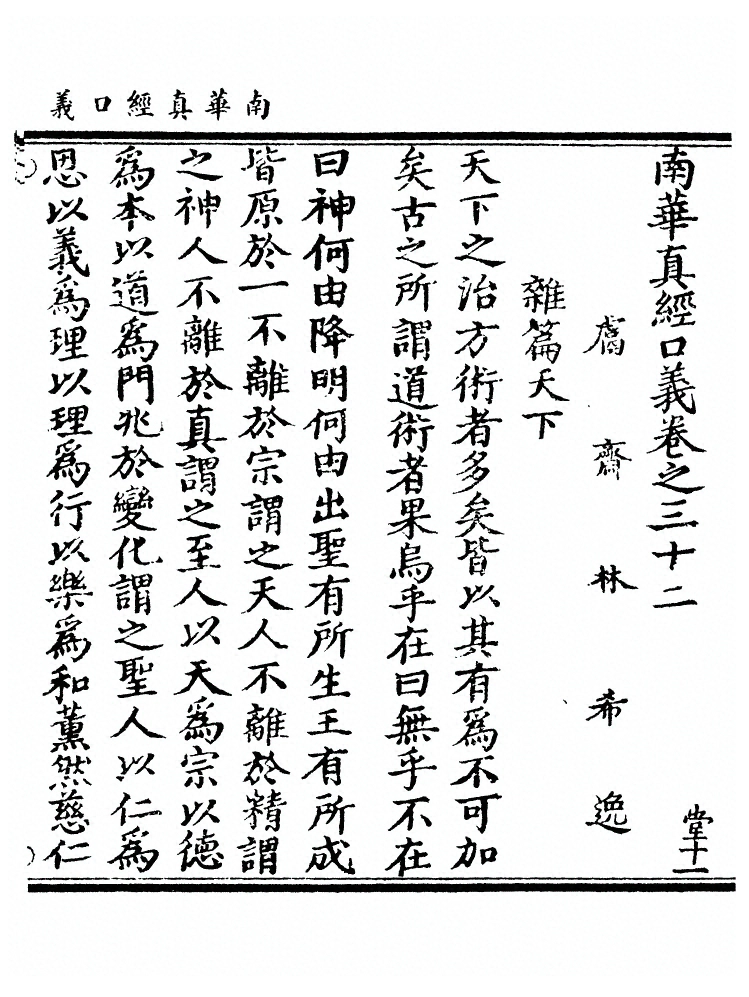 南華真經口義
南華真經口義卷之三十二
堂十一
鬳齋林希逸
雜篇天下
天下之治方術者多矣皆以其有爲不可加
矣古之所謂道術者果烏乎在曰無乎不在
曰神何由降明何由出聖有所生王有所成
皆原於一不離於宗謂之天人不離於精謂
之神人不離於真謂之至人以天爲宗以德
爲本以道爲門兆於變化謂之聖人以仁爲
恩以義爲理以理爲行以樂爲和薰然慈仁